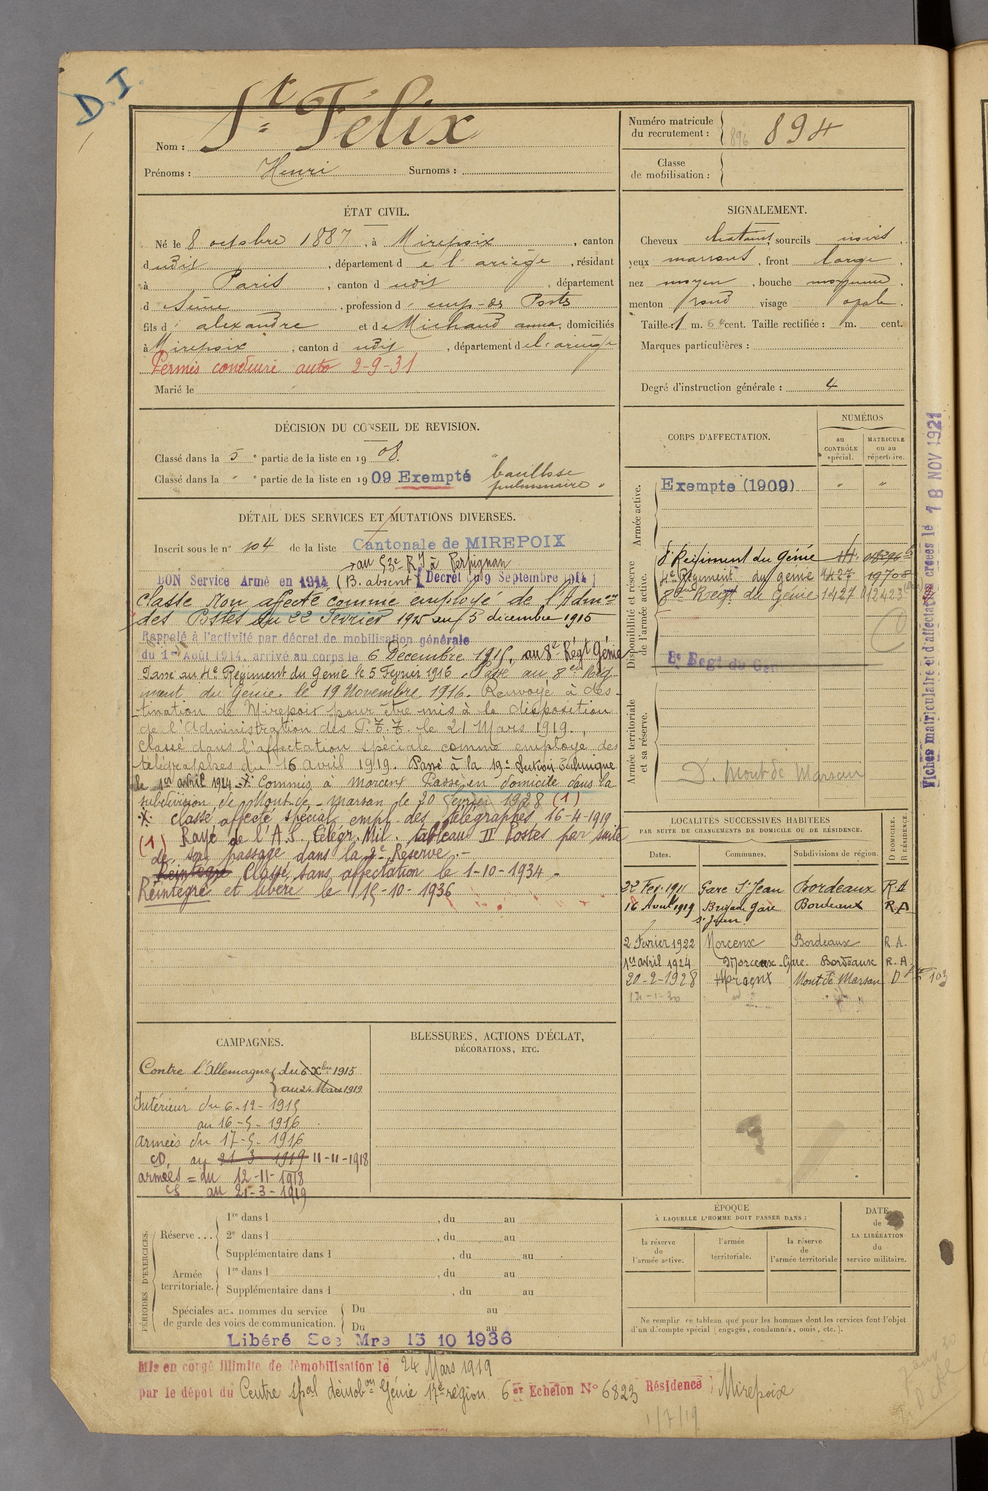 D. I.
Nom : St Félix
Prénoms : Henri Surnoms :
Numéro matricule du recrutement : 896 894
Classe de mobilisation :
ÉTAT CIVIL.
Né le 8 octobre 1887, à Mirepoix, canton
dudit, département de l'ariège, résidant
à Paris, canton dudit, département
d Seine, profession d'emp. des Postes
fils d'alexandre et de Michaud anna, domiciliés
à Mirepoix, canton dudit, département de l'ariège
Permis conduire auto 2-9-31
Marié le
SIGNALEMENT.
Cheveux chatains sourcils noirs,
yeux marrons, front large,
nez moyen, bouche moyenne,
menton rond visage ovale.
Taille : 1 m. 64 cent. Taille rectifiée : 1 m. cent.
Marques particulières :
Degré d'instruction générale : 4
DÉCISION DU CONSEIL DE REVISION.
Classé dans la 5e partie de la liste en 1908.
Classé dans la " partie de la liste en 1909 Exempté bacillose pulmonaire
DÉTAIL DES SERVICES ET MUTATIONS DIVERSES.
Inscrit sous le n° 104 de la liste Cantonale de MIREPOIX
au 53e R.I à Perpignan
BON Service Armé en 1914 (B. absent) (Décret du 9 Septembre 1914)
Classé Non affecté comme employé de l'Admon
des Postes du 22 Fevrier 1915 au 5 décembre 1915
Rappelé à l'activité par décret de mobilisation générale
du 1er Août 1914, arrivé au corps le 6 Decembre 1915, au 8e Regt Génie
Passé au 4e Régiment du Génie le 5 Fevrier 1916. Passé au 8e Régi-
ment du Génie le 19 Novembre 1916. Renvoyé à des-
tination de Mirepoix pour être mis à la disposition
de l'Administration des P.T.T. le 21 Mars 1919.
Classé dans l'affectation spéciale comme employé des
télégraphes du 16 avril 1919. Passé à la 19e Section Technique
le 1er avril 1924 Commis à Morcenx Passé en domicile dans la
subdivision de Mont-de-Marsan le 20 février 1928 (1)
Classé affecté spécial empl. des télégraphes, 16-4-1919
(1) Rayé de l'A.S. Télégr. Mil. tableau II Postes par suite
de son passage dans la 2e Réserve.-
Réintégré Classé sans affectation le 1-10-1934 -
Réintégré et libéré le 15-10-1936
CORPS D'AFFECTATION.
NUMÉROS
au CONTRÔLE spécial.
MATRICULE ou au répertoire.
Armée active.
Exempte (1909) " "
Disponibilité et réserve de l'armée active.
8e Régiment du Génie
4e Régiment du génie 1427 19708
8me Regt du Génie 1427 012423
8e Regt du Génie
Armée territoriale et sa réserve.
D. Mont de Marsan
Fiches matriculaire et d'affectation créées le 18 NOV 1921
LOCALITÉS SUCCESSIVES HABITÉES
PAR SUITE DE CHANGEMENTS DE DOMICILE OU DE RÉSIDENCE.
D DOMICILE. R RÉSIDENCE.
Dates. Communes. Subdivisions de région.
22 Fev. 1911 Gare St Jean Bordeaux R A
16 Avril 1919 Brigade Gare St Jean Bordeaux R A
2 Fevrier 1922 Morcenx Bordeaux R. A.
1er avril 1924 Morcenx-Gare Bordeaux R. A.
20-2-1928 Morcenx Mont de Marsan D
CAMPAGNES.
Contre l'Allemagne du 6 Xbre 1915
au 24 Mars 1919
Intérieur du 6-12-1915
au 16-5-1916
armées du 17-5-1916
CD. au 21-3-1919 11-11-1918
armées = du 12-11-1918
au 21-3-1919
BLESSURES, ACTIONS D'ÉCLAT,
DÉCORATIONS, ETC.
PÉRIODES D'EXERCICES.
Réserve ... 1re dans l , du au
2e dans l , du au
Supplémentaire dans l , du au
Armée territoriale. 1re dans l , du au
Supplémentaire dans l , du au
Spéciales aux hommes du service de garde des voies de communication. Du au
Du au
Libéré Sce Mre 15 10 1936
ÉPOQUE
À LAQUELLE L'HOMME DOIT PASSER DANS :
la réserve de l'armée active.
l'armée territoriale.
la réserve de l'armée territoriale
DATE de LA LIBÉRATION du service militaire.
Ne remplir ce tableau que pour les hommes dont les services font l'objet
d'un décompte spécial (engagés, condamnés, omis, etc.).
Mis en congé illimité de démobilisation le 24 Mars 1919
par le dépôt du Centre spal démobon Génie 17e région. 6er Echelon N° 6823 Résidence : Mirepoix
1/7/19